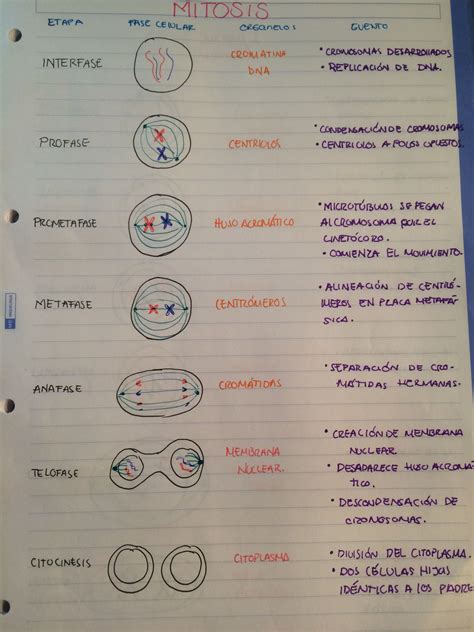 MITOSIS
ETAPA FASE CELULAR ORGANELOS EVENTO
INTERFASE
CROMATINA
DNA
• CROMOSOMAS DESARROLLADOS
• REPLICACIÓN DE DNA.
PROFASE
CENTRIOLOS
• CONDENSACIÓN DE CROMOSOMAS
• CENTRIOLOS A POLOS OPUESTOS.
PROMETAFASE
HUSO ACROMÁTICO
• MICROTÚBULOS SE PEGAN
AL CROMOSOMA POR EL
CINETÓCORO.
• COMIENZA EL MOVIMIENTO.
METAFASE
CENTRÓMEROS
• ALINEACIÓN DE CENTRÓ-
MEROS EN PLACA METAFÁ-
SICA.
ANAFASE
CROMÁTIDAS
• SEPARACIÓN DE CRO-
MÁTIDAS HERMANAS.
TELOFASE
MEMBRANA
NUCLEAR.
• CREACIÓN DE MEMBRANA
NUCLEAR.
• DESADARECE HUSO ACROMÁ-
TICO.
• DESCONDENSACIÓN DE
CRONOSOMAS.
CITOCINESIS
CITOPLASMA
• DIVISIÓN DEL CITOPLASMA.
• DOS CÉLULAS HIJAS
IDÉNTICAS A LOS PADRE